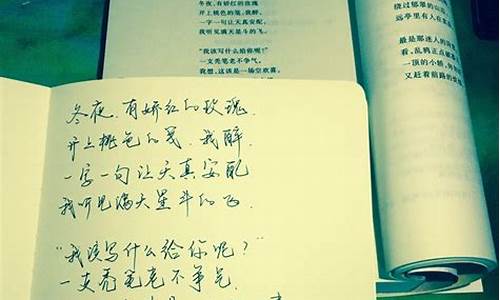 冬夜，有娇红的玫瑰
开上桃色的笺，我醉，
一字一句让天真安配，
我听见满天星斗的飞。
“我该写什么给你呢？”
一支秃笔老不争气，
我想，这该是一场空欢喜，
绕过郁翠的山
远亭里有人在
最是那迷人的
看，乱鸦正点
一顶的小轿，
又赶着前路的
冬夜，有娇红的玫瑰，
开上桃色的笺，我醉，
一字一句让天真安配
我听见满天星斗的飞
“我该写什么给你呢？”
一支秃笔老不争气，